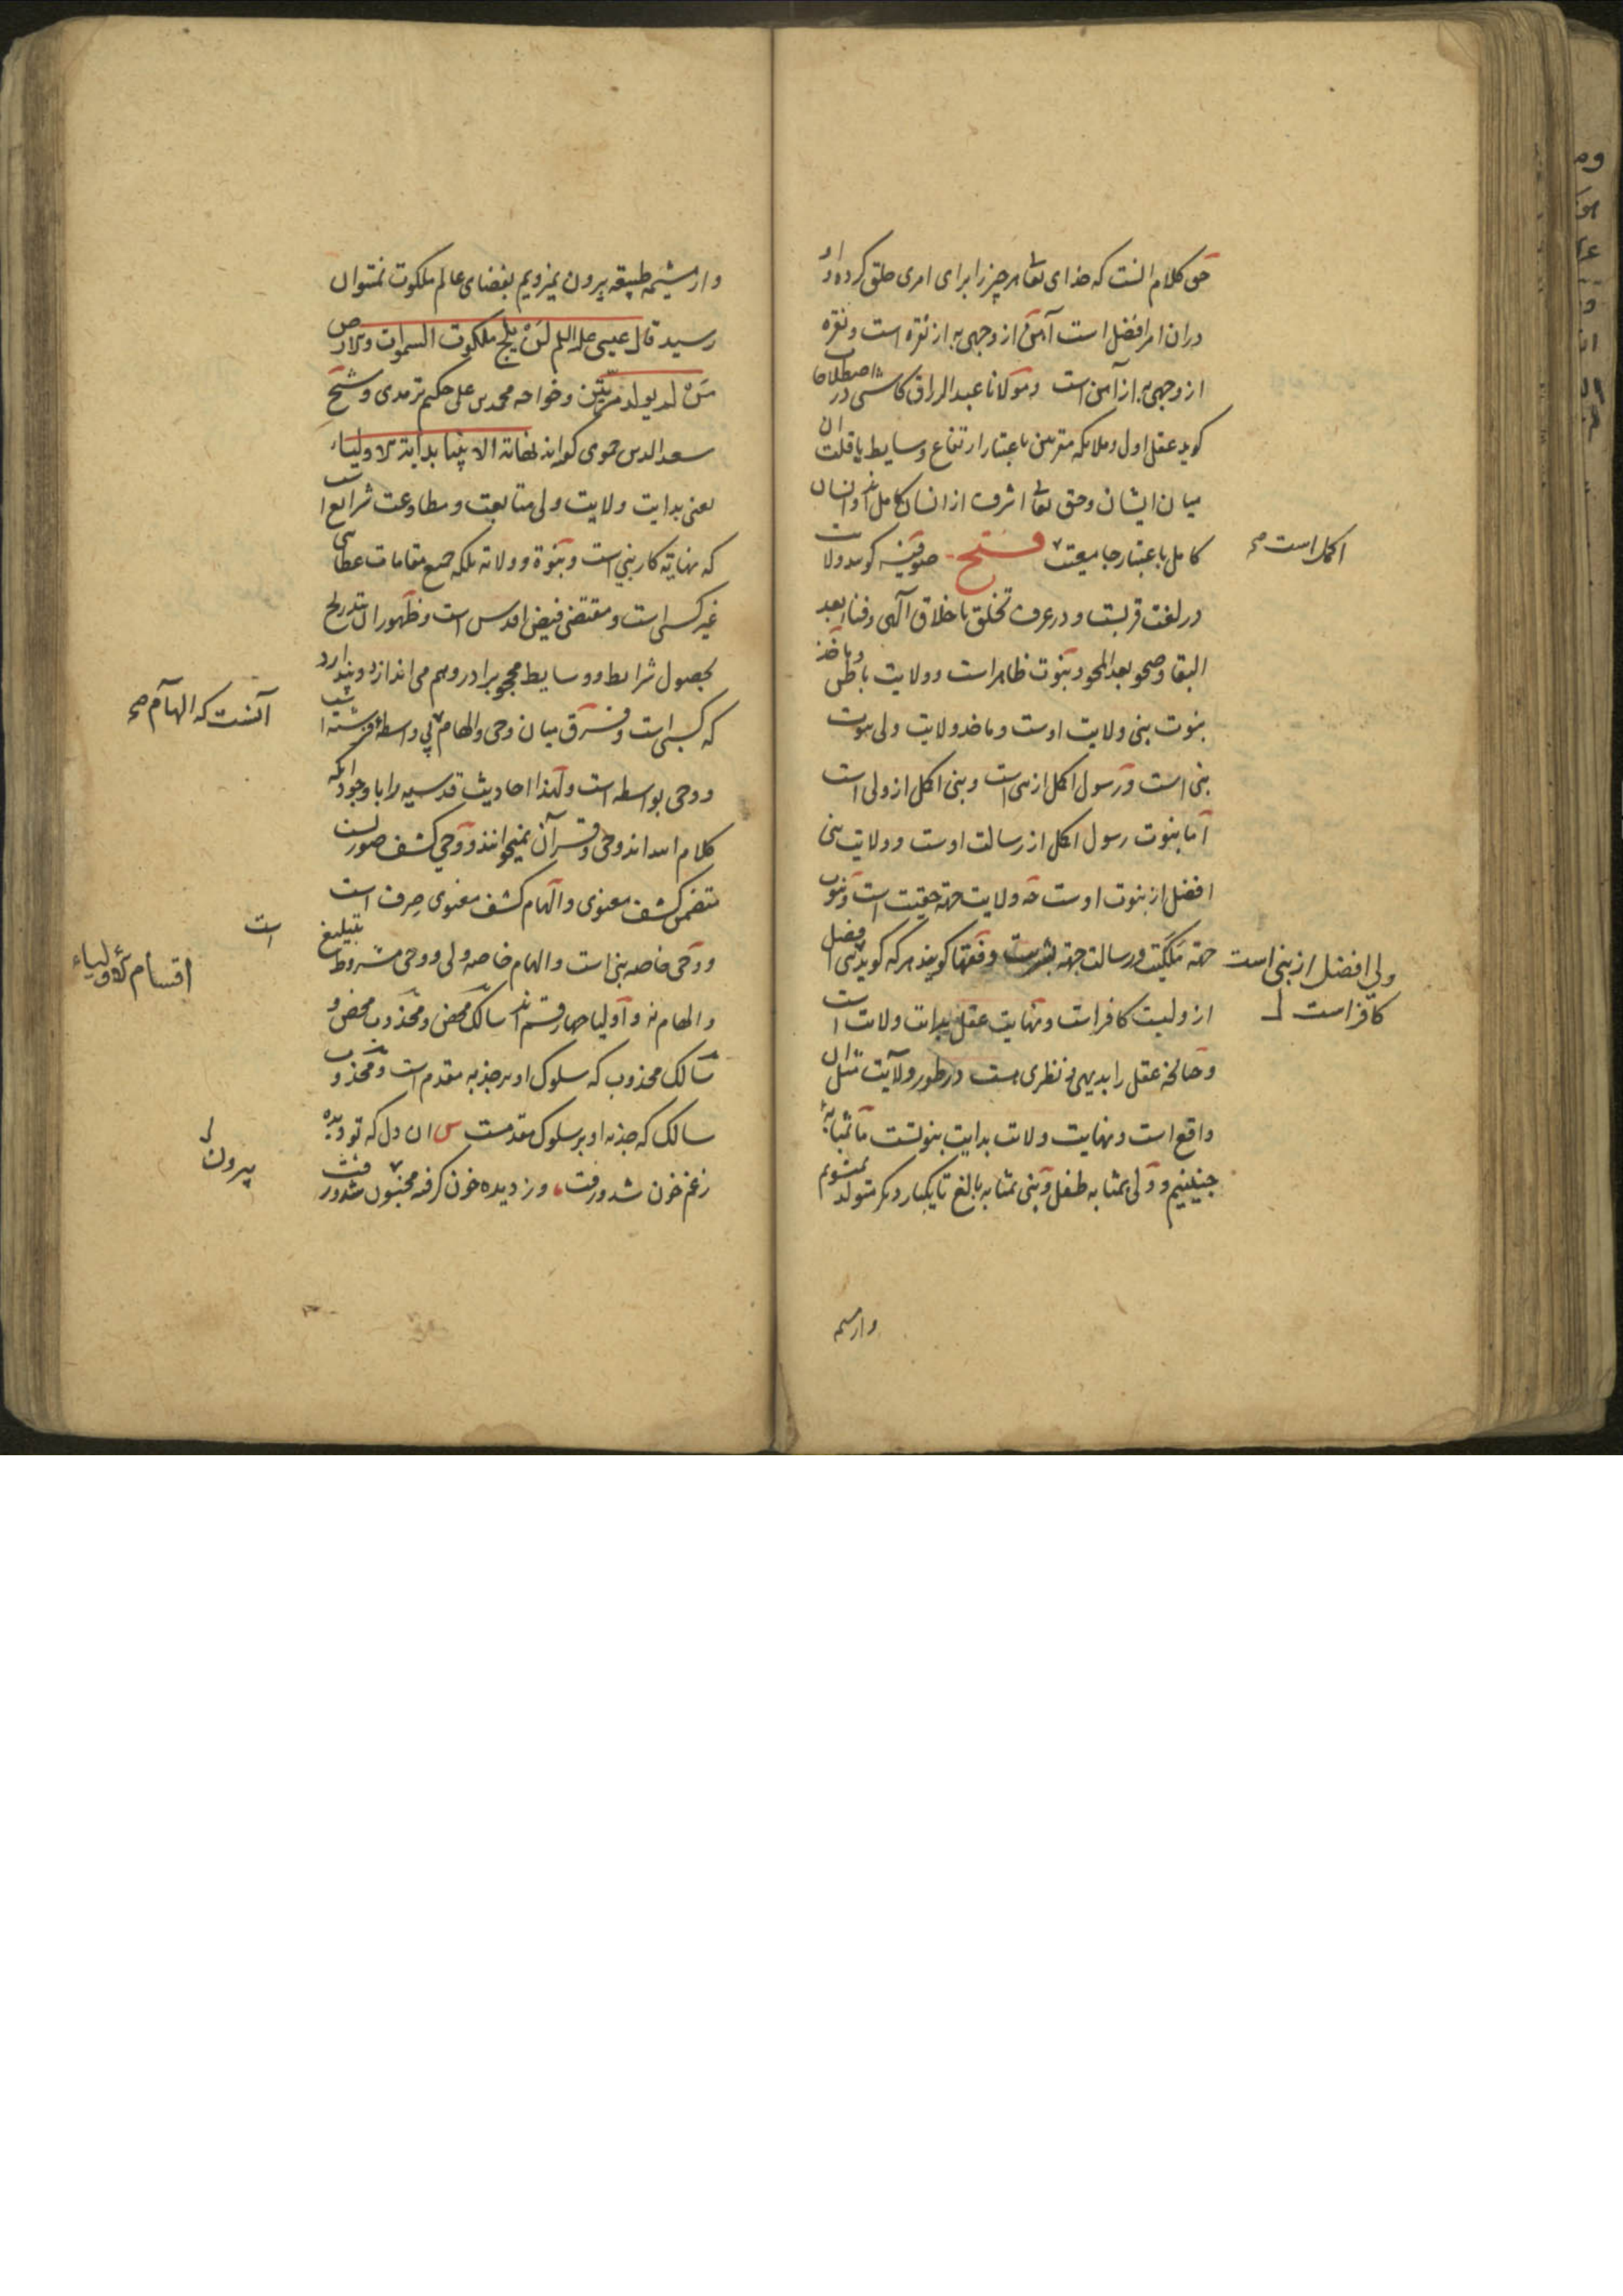 حق کلام آنست که خدای تعالی هر چیز را برای امری خلق کرده و او
در آن امر افضل است آهن از وجهی به از نقره است و نقره
از وجهی به از آهن است و مولانا عبد الرزاق کاشی در اصطلاحات
کوید عقل اول و ملایکه مقربین باعتبار ارتفاع وسایط یا قلت آن
میان ایشان و حق تعالی اشرف از انسان کامل اند و انسان
کامل باعتبار جامعیت فتح صوفیه کویند ولایت
اکمل است صح
در لغت قربست و در عرف تخلق باخلاق الهی و فنا بعد
البقا و صحو بعد المحو و نبوت ظاهر است و ولایت باطن و ماخذ
نبوت نبی ولایت اوست و ماخذ ولایت ولی نبوت
نبی است و رسول اکمل از نبی است و نبی اکمل از ولی است
اما نبوت رسول اکمل از رسالت اوست و ولایت نبی
افضل از نبوت اوست چه ولایت جهة حقیت است و نبوت
جهة ملکیت و رسالت جهة بشریت و فقها کویند هر که کوید نبی افضل
ولی افضل از نبی است
کافر است
از ولیست کافر است و نهایت عقل بدایت ولایت است
و چنانچه عقل را بدیهی و نظری هست در طور ولایت مثل آن
واقع است و نهایت ولایت بدایت نبوتست ما بمثابه
جنینیم و ولی بمثابه طفل و نبی بمثابه بالغ تا یکبار دیکر متولد نشویم
و از مشیمه
و از مشیمه طبیعه بیرون نیزویم بفضای عالم ملکوت نمیتوان
رسید قال عیسی علیه السلم لَنْ یلج ملکوت السموات والارض
مَنْ لم یولد مرّتین و خواجه محمد بن علی حکیم ترمدی و شیخ
سعد الدین حموی کفته اند نهایة الانبیاء بدایة الاولیاء
یعنی بدایت ولایت ولی متابعت و مطاوعت شرایع است
که نهایة کار نبی است و نبوة و ولایة بلکه جمیع مقامات عطایی
غیر کسبی است و مقتضی فیض اقدس است و ظهور آن بتدریج
بحصول شرایط و وسایط محجوب را در وهم می اندازد و پندارد
که کسبی است و فرق میان وحی و الهام بی واسطه فرشته است
آنست که الهام صح
و وحی بواسطه است و لهذا احادیث قدسیه را با وجود آنکه
کلام الله اند وحی و قرآن نمیخوانند و وحی کشف صوریست
متضمن کشف معنوی و الهام کشف معنوی صِرف است
و وحی خاصه نبی است و الهام خاصه ولی و وحی مشروط بتبلیغ
است
و الهام نه و اولیا چهار قسم اند سالک محض و مجذوب محض و
اقسام الاولیاء
سالک مجذوب که سلوک او بر جذبه مقدم است و مجذوب
سالک که جذبه او بر سلوک مقدمست س ان دل که تو دیده
زغم خون شد و رفت وز دیده خون کرفته بیرون شد و رفت
بیرون